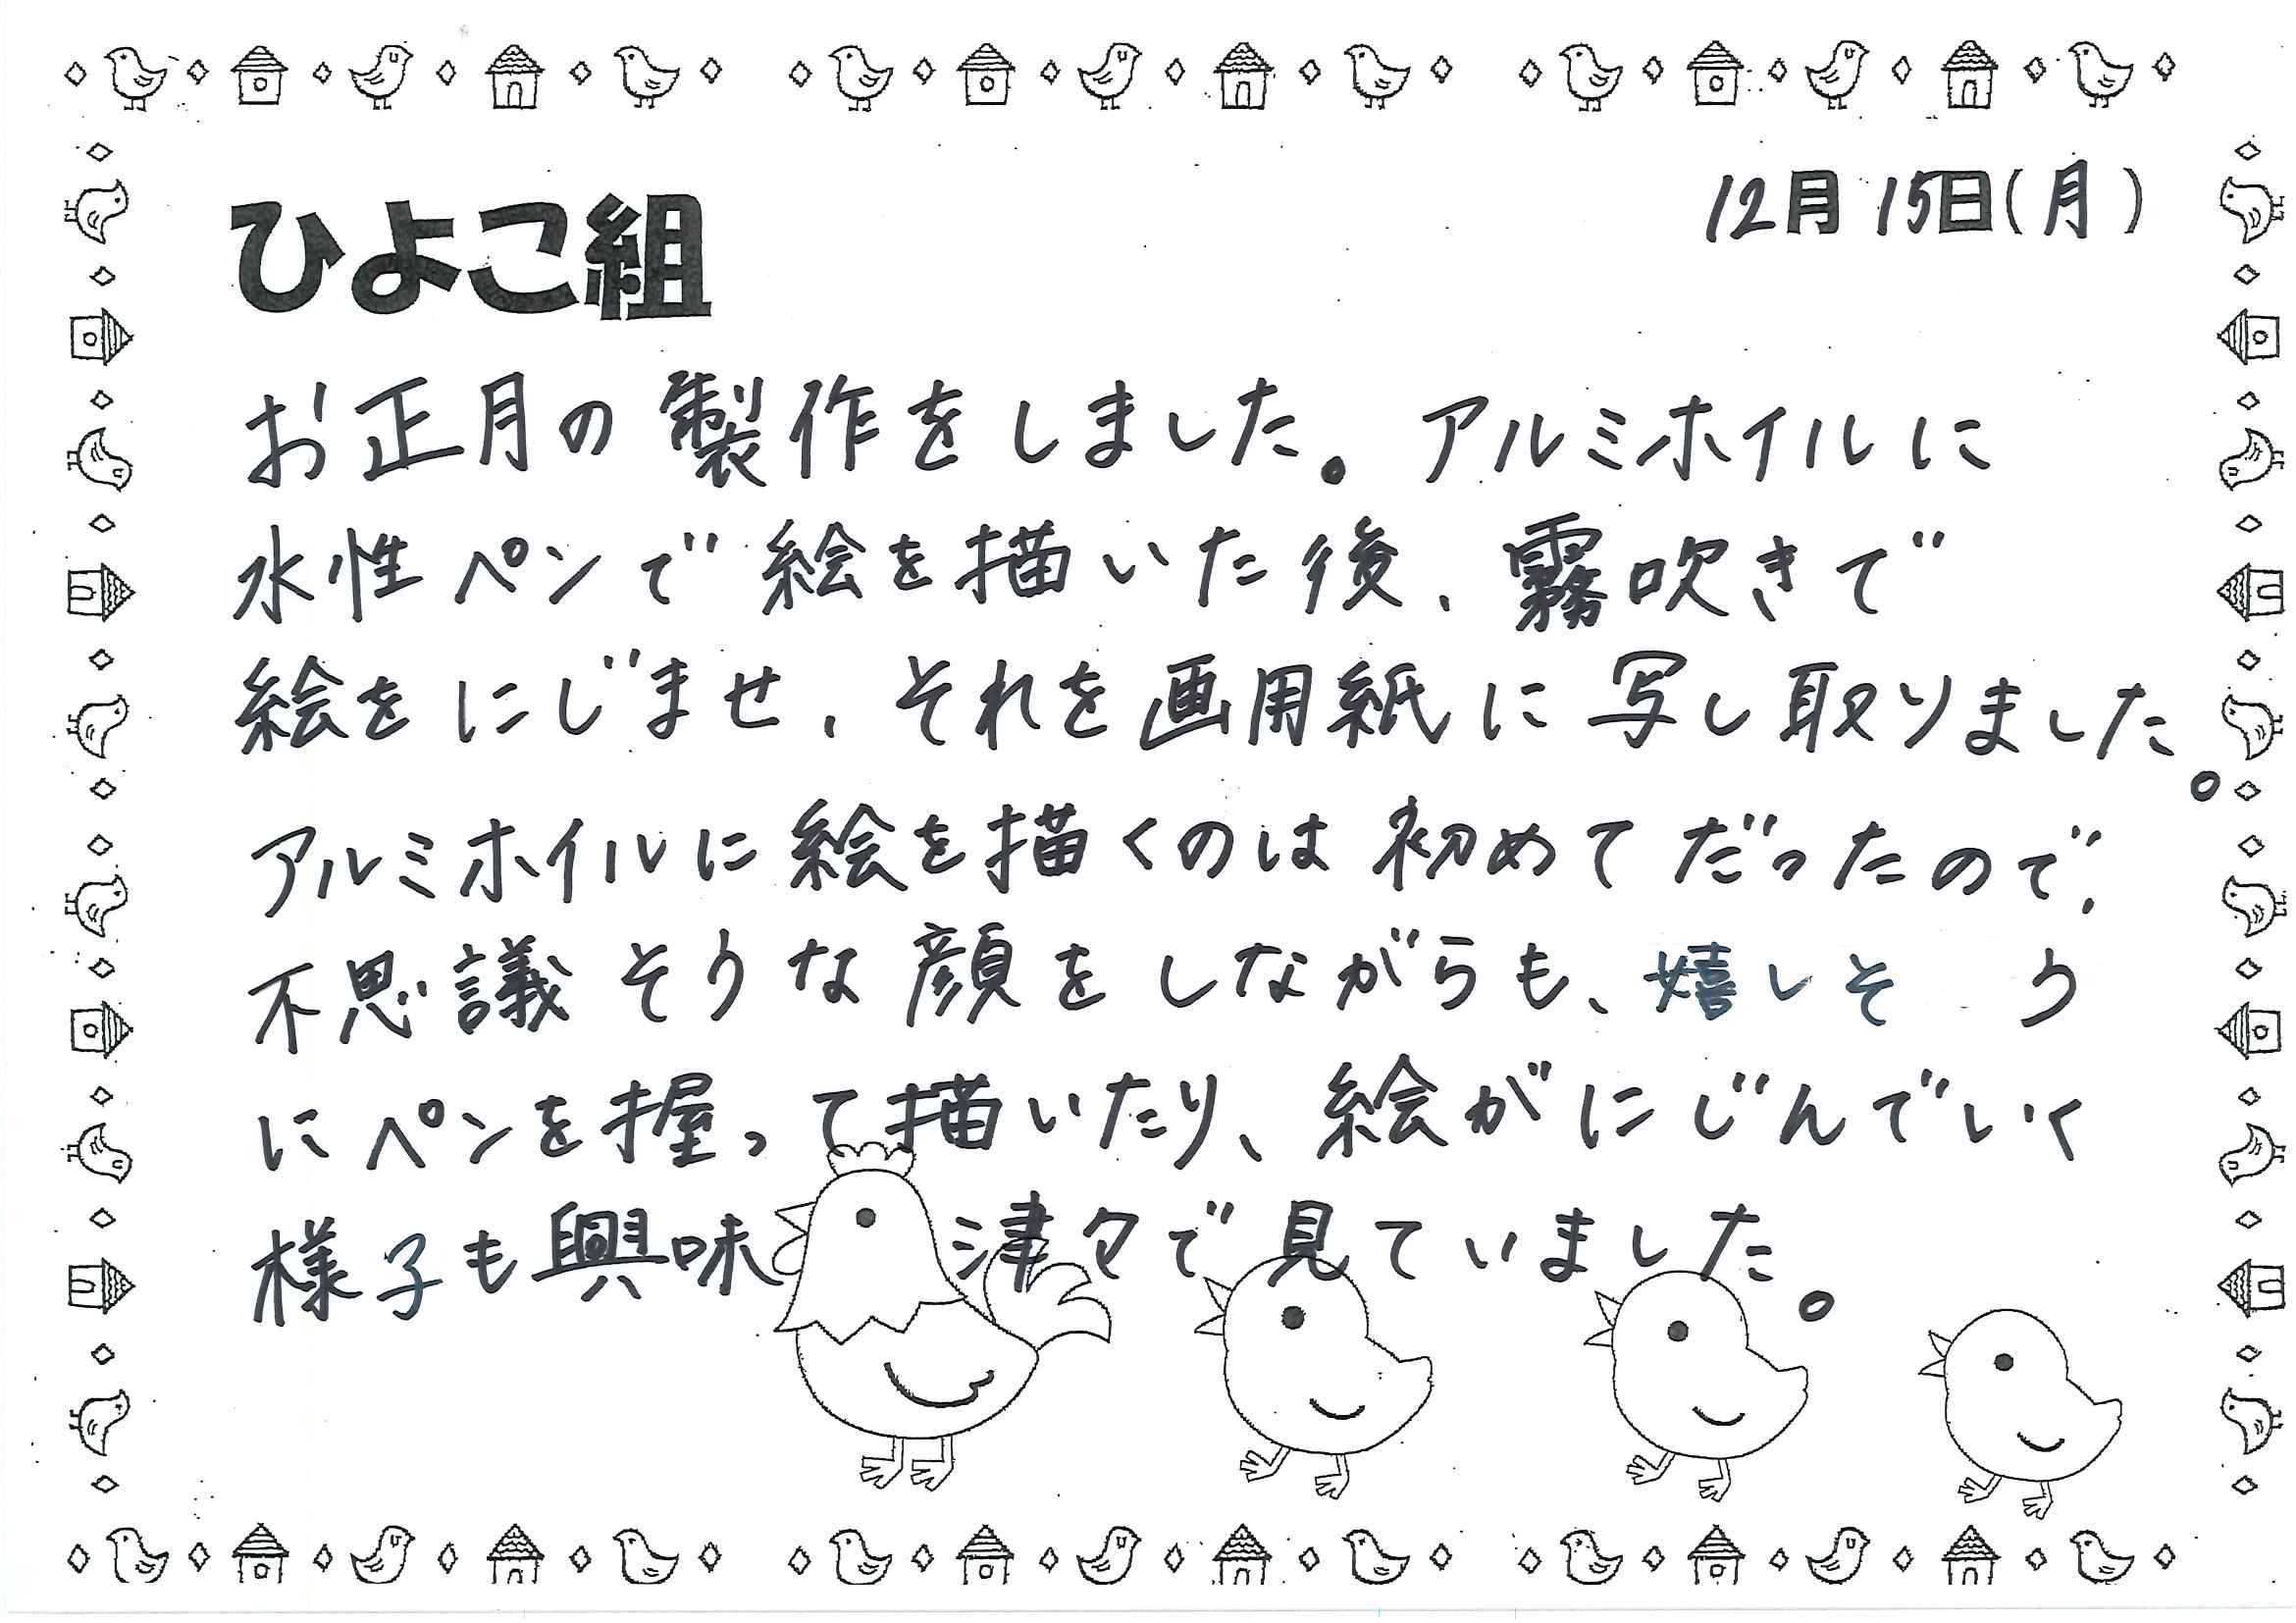 12月15日(月)
ひよこ組
お正月の製作をしました。アルミホイルに
水性ペンで絵を描いた後、霧吹きで
絵をにじませ、それを画用紙に写し取りました。
アルミホイルに絵を描くのは初めてだったので、
不思議そうな顔をしながらも、嬉しそう
にペンを握って描いたり、絵がにじんでいく
様子も興味津々で見ていました。